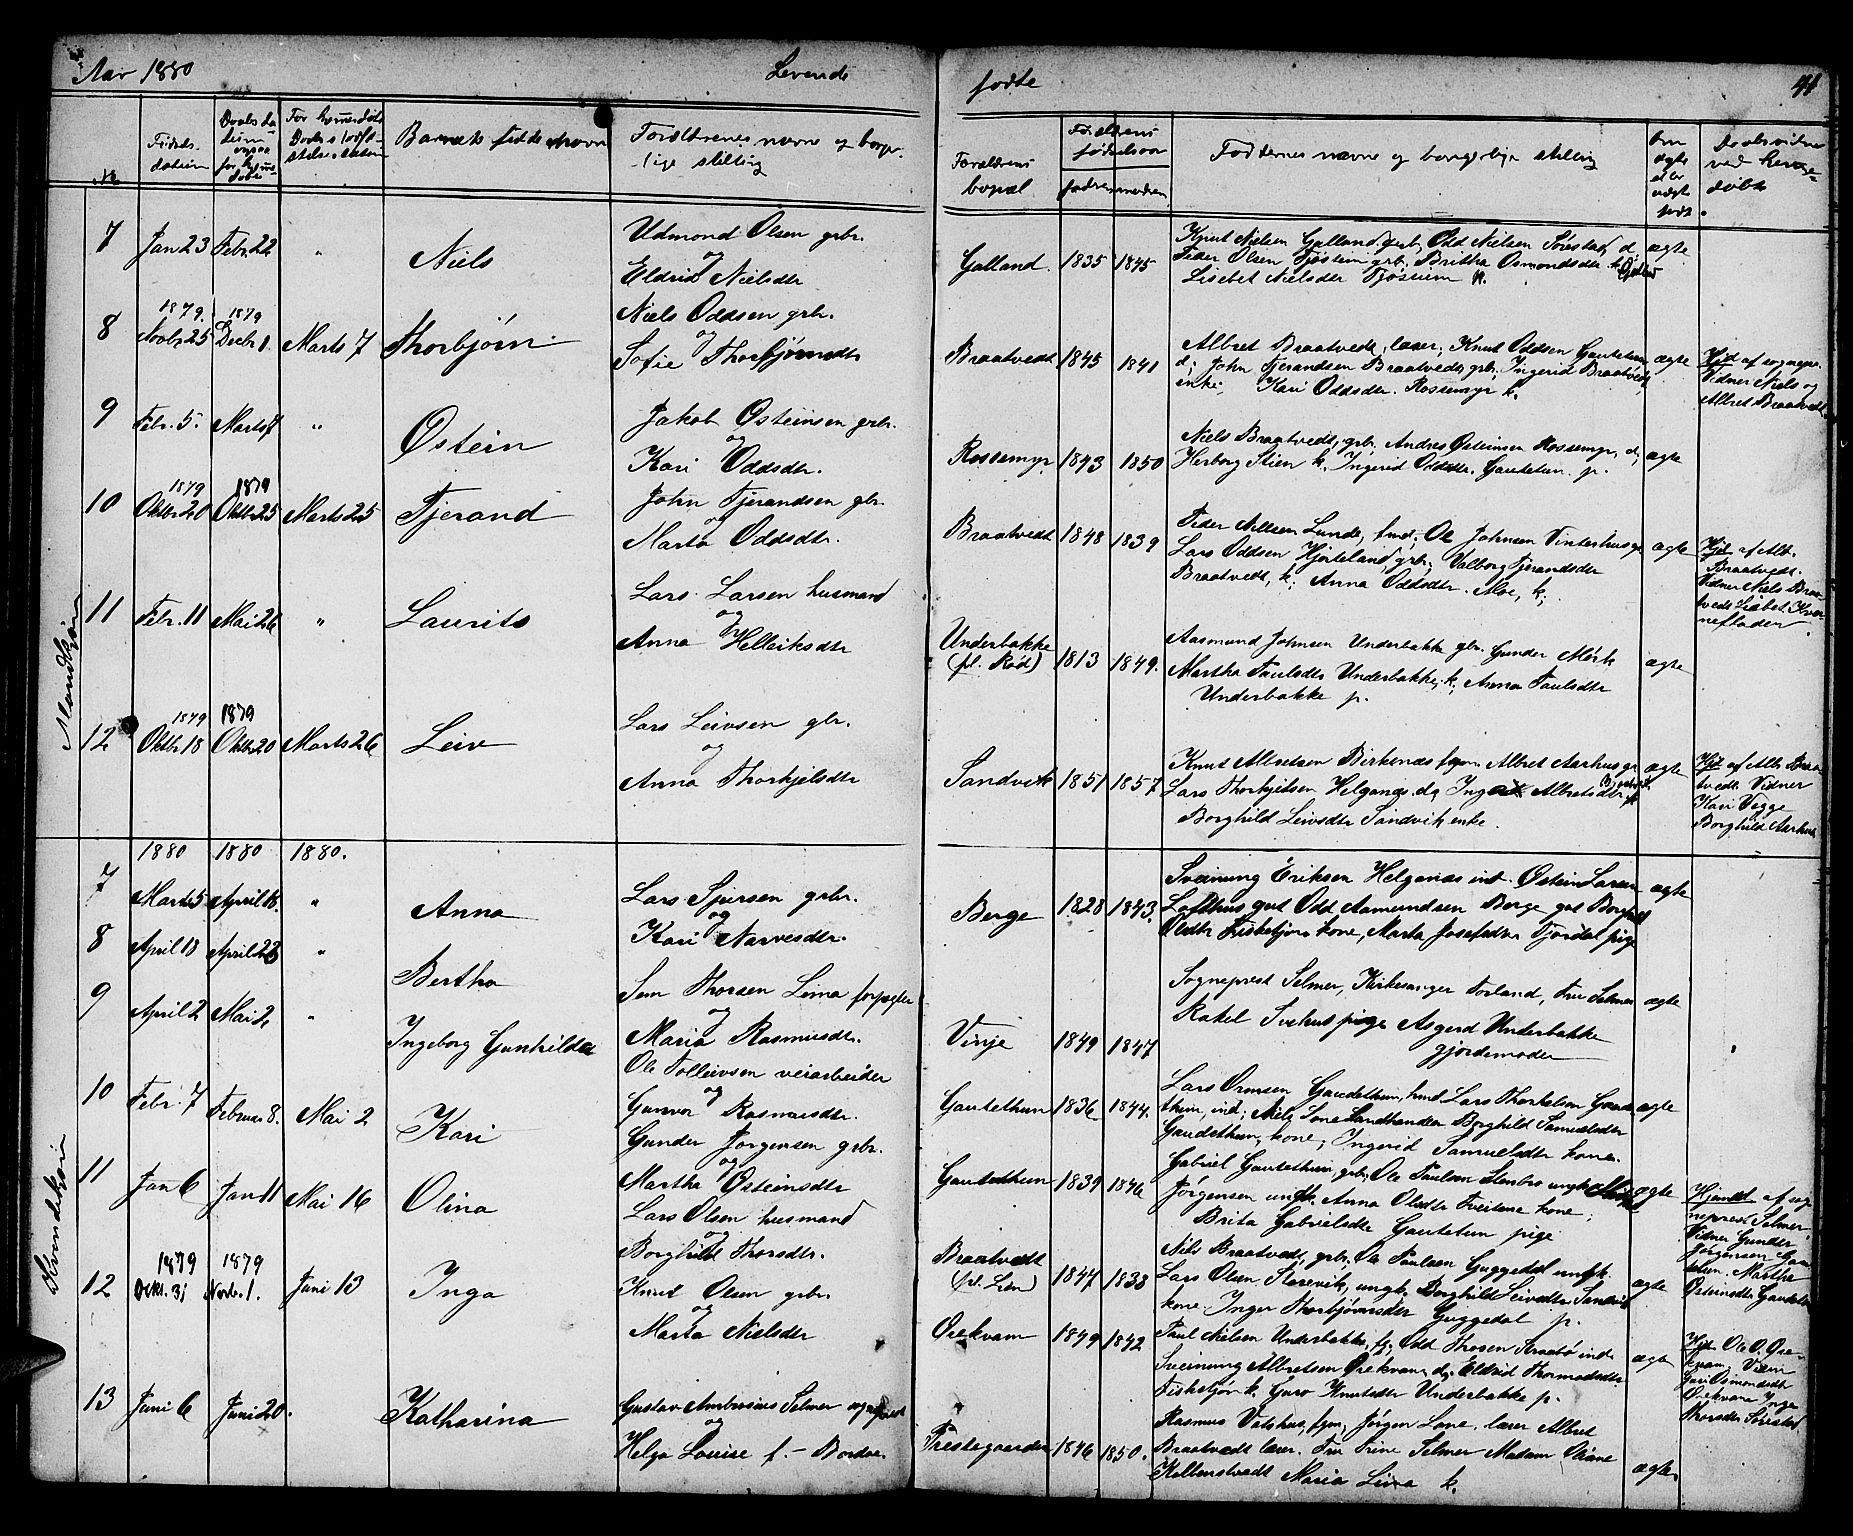 Aar 1880
Levende
fødte
41
No
Fødsels-
datum
Daabsda-
tum
ogsaa
for hjem̅e
døbe
For hjem̅edøbte
Daabs stadf-
stelsesdatum
Barnets fulde Navn
Forældrenes navne og borger-
lige stilling
Forældrenes
bopæl
Forældrenes
fødselsaar
fadren
modren
Faddernes navne og borgerlige stilling
om
ægte
eller
uægte
født
Daabsvidner
ved hjem̅e-
døbte
Mandkjøn
7 Jan 23 Febr. 22 "
Niels
Udmond Olsen grbr.
og
Eldrid Nielsdtr
Galland. 1835 1845
Knut Nielsen Galland, grb, Odd Nielsen Sørestad, d,
Peder Olsen Tjøstem grb, Britha Osmondsdtr k.
Lisebet Nielsdtr Tjøstem p.
ægte
8 1879. Novbr 25 1879 Decbr 1. Marts 7
Thorbjørn
Niels Oddsen grbr.
og
Sofie Thorbjørnsdtr
Braatvedt 1845 1841
Albret Braatvedt, lærer, Knut Oddsen Gautetun
d; John Tjerandsen Braatvedt, grb; Ingerid Braatvedt
enke; Kari Oddsdtr. Rossemyr k.
ægte
Hjd af sognepr.
Vidner Niels og
Albret Braatvedt
9 Febr. 5. Marts 7 "
Østein
Jakob Østeinsen grbr.
og
Kari Oddsdtr.
Rossemyr 1843 1850
Niels Braatvedt, grb, Andres Østeinsen Rossemyr, d,
Herborg Stien k, Ingerid Oddsdtr. Gautetun. p.
ægte
10 1879 Oktbr 20 1879 Oktbr 25 Marts 25
Tjerand
John Tjerandsen gbr.
og
Marta Oddsdtr.
Braatvedt 1848 1839
Peder Nilsen Lunde, fmd, Ole Johnsen Vinterhus g
Lars Oddsen Hjorteland, grb; Valborg Tjerandsdtr
Braatvedt, k; Anna Oddsdtr. Moe, k;
ægte
Hjd af Alb.
Braatvedt.
Vidner Niels Braa-
tvedt Lisbet Kver
nefladen
11 Febr. 11 Mai 26 "
Laurits
Lars Larsen husmand
og
Anna Helleiksdtr
Underbakke
(pl. Rød) 1813 1849.
Aasmund Johnsen Underbakke gbr. Gunder Mork
Martha Paulsdtr Underbakke, k; Anna Paulsdtr
Underbakke p.
ægte
12 1879 Oktbr 18 1879 Oktbr 20 Marts 26
Leiv
Lars Leivsen gbr.
og
Anna Thorkjelsdtr
Sandvik 1851 1857
Knut Albretsen Birkenæs fgm Albret Aarhus gr
Lars Thorkjelsen Helganæs. d, Ingerid Albretsdtr
Borghild Leivsdtr Sandvik enke.
ægte
Hjd af Alb Braa-
tvedt. Vidner
Kari Vegge
Borghild Aarhus
Kvindekjøn
1880 1880 1880.
7 Marts 5 April 18. "
Anna
Lars Sjursen grbr.
og
Kari Narvesdtr.
Berge 1828 1843.
Sveinung Eriksen Helganæs ind. Østein Larsen
Lofthus gut Odd Aamundsen Berge gut Borghild
Oldtr Fiskekjøn kone, Marta Josefsdtr Fjordal pige
ægte
8 April 18 April 23 "
Bertha
Sem Thorsen Lima forpagter
og
Maria Rasmusdtr.
Vinje 1849 1847
Sogneprest Selmer, Kirkesanger Torland, Fru Selmer
Rakel Svehus pige Asgerd Underbakke
gjordemoder
ægte
9 April 2 Mai 2 "
Ingeborg Gunhilda
Ole Tolleivsen veiarbeider
og
Gunvor Rasmusdtr.
Gautethun 1836 1844.
Lars Ormsen Gaudethun, hmd Lars Thorkelsen Gaute
thun, ind; Niels Tone Landhandler Borghild Samuelsdtr
Gaudethun, kone, Ingerid Samuelsdtr kone.
ægte
10 Febr. 7 Februar 8. Mai 2
Kari
Gunder Jørgensen grbr.
og
Martha Østeinsdtr
Gautethun 1839 1846
Gabriel Gautethun, grb, Ole Paulsen Stenbro ungk
Jørgensen ungk. Anna Olsdtr Tveitene kone;
Brita Gabrielsdtr Gautetun pige
ægte
Hjemdt af sog
neprest Selmer
Vidner Gunder
Jørgensen Gau
tetun. Martha
Østeinsdtr Gautetun
11 Jan 6 Jan 11 Mai 16
Olina
Lars Olsen husmand
og
Borghild Thorsdtr.
Braatvedt
(pl. Lien) 1847 1838
Nils Braatvedt, grbr, Ole Paulsen Guggedal ungk.
Lars Olsen Storevik, ungk, Borghild Leivsdtr Sandvik
kone. Inger Thorbjørnsdtr Guggedal p.
ægte
12 1879 Oktbr. 31 1879 Novbr. 1. Juni 13
Inga
Knut Olsen grbr.
og
Marta Nielsdtr
Ørekvam 1849 1842
Paul Nielsen Underbakke, fg, Odd Thorsen Straabø ind.
Sveinung Albretsen Ørekvam, d, Eldrid Thormodsdtr.
Fiskekjøn k. Guro Knutsdtr Underbakke p.
ægte
Hjd. Ole O. Øre-
kvam Vidn
Guri Osmondsdtr
Ørekvam Inga
Thorsdtr Sørestad
13 Juni 6 Juni 20.
Katharina
Gustav Ambrosius Selmer sogneprest
og
Helga Louise f.- Bordoe.
Prestegaarden 1846 1850.
Rasmus Vatshus, fgm, Jørgen Lone, lærer Albret
Braatvedt lærer. Fru Trine Selmer Madam Oliane
Kolbenstvedt Maria Lima k.
ægte